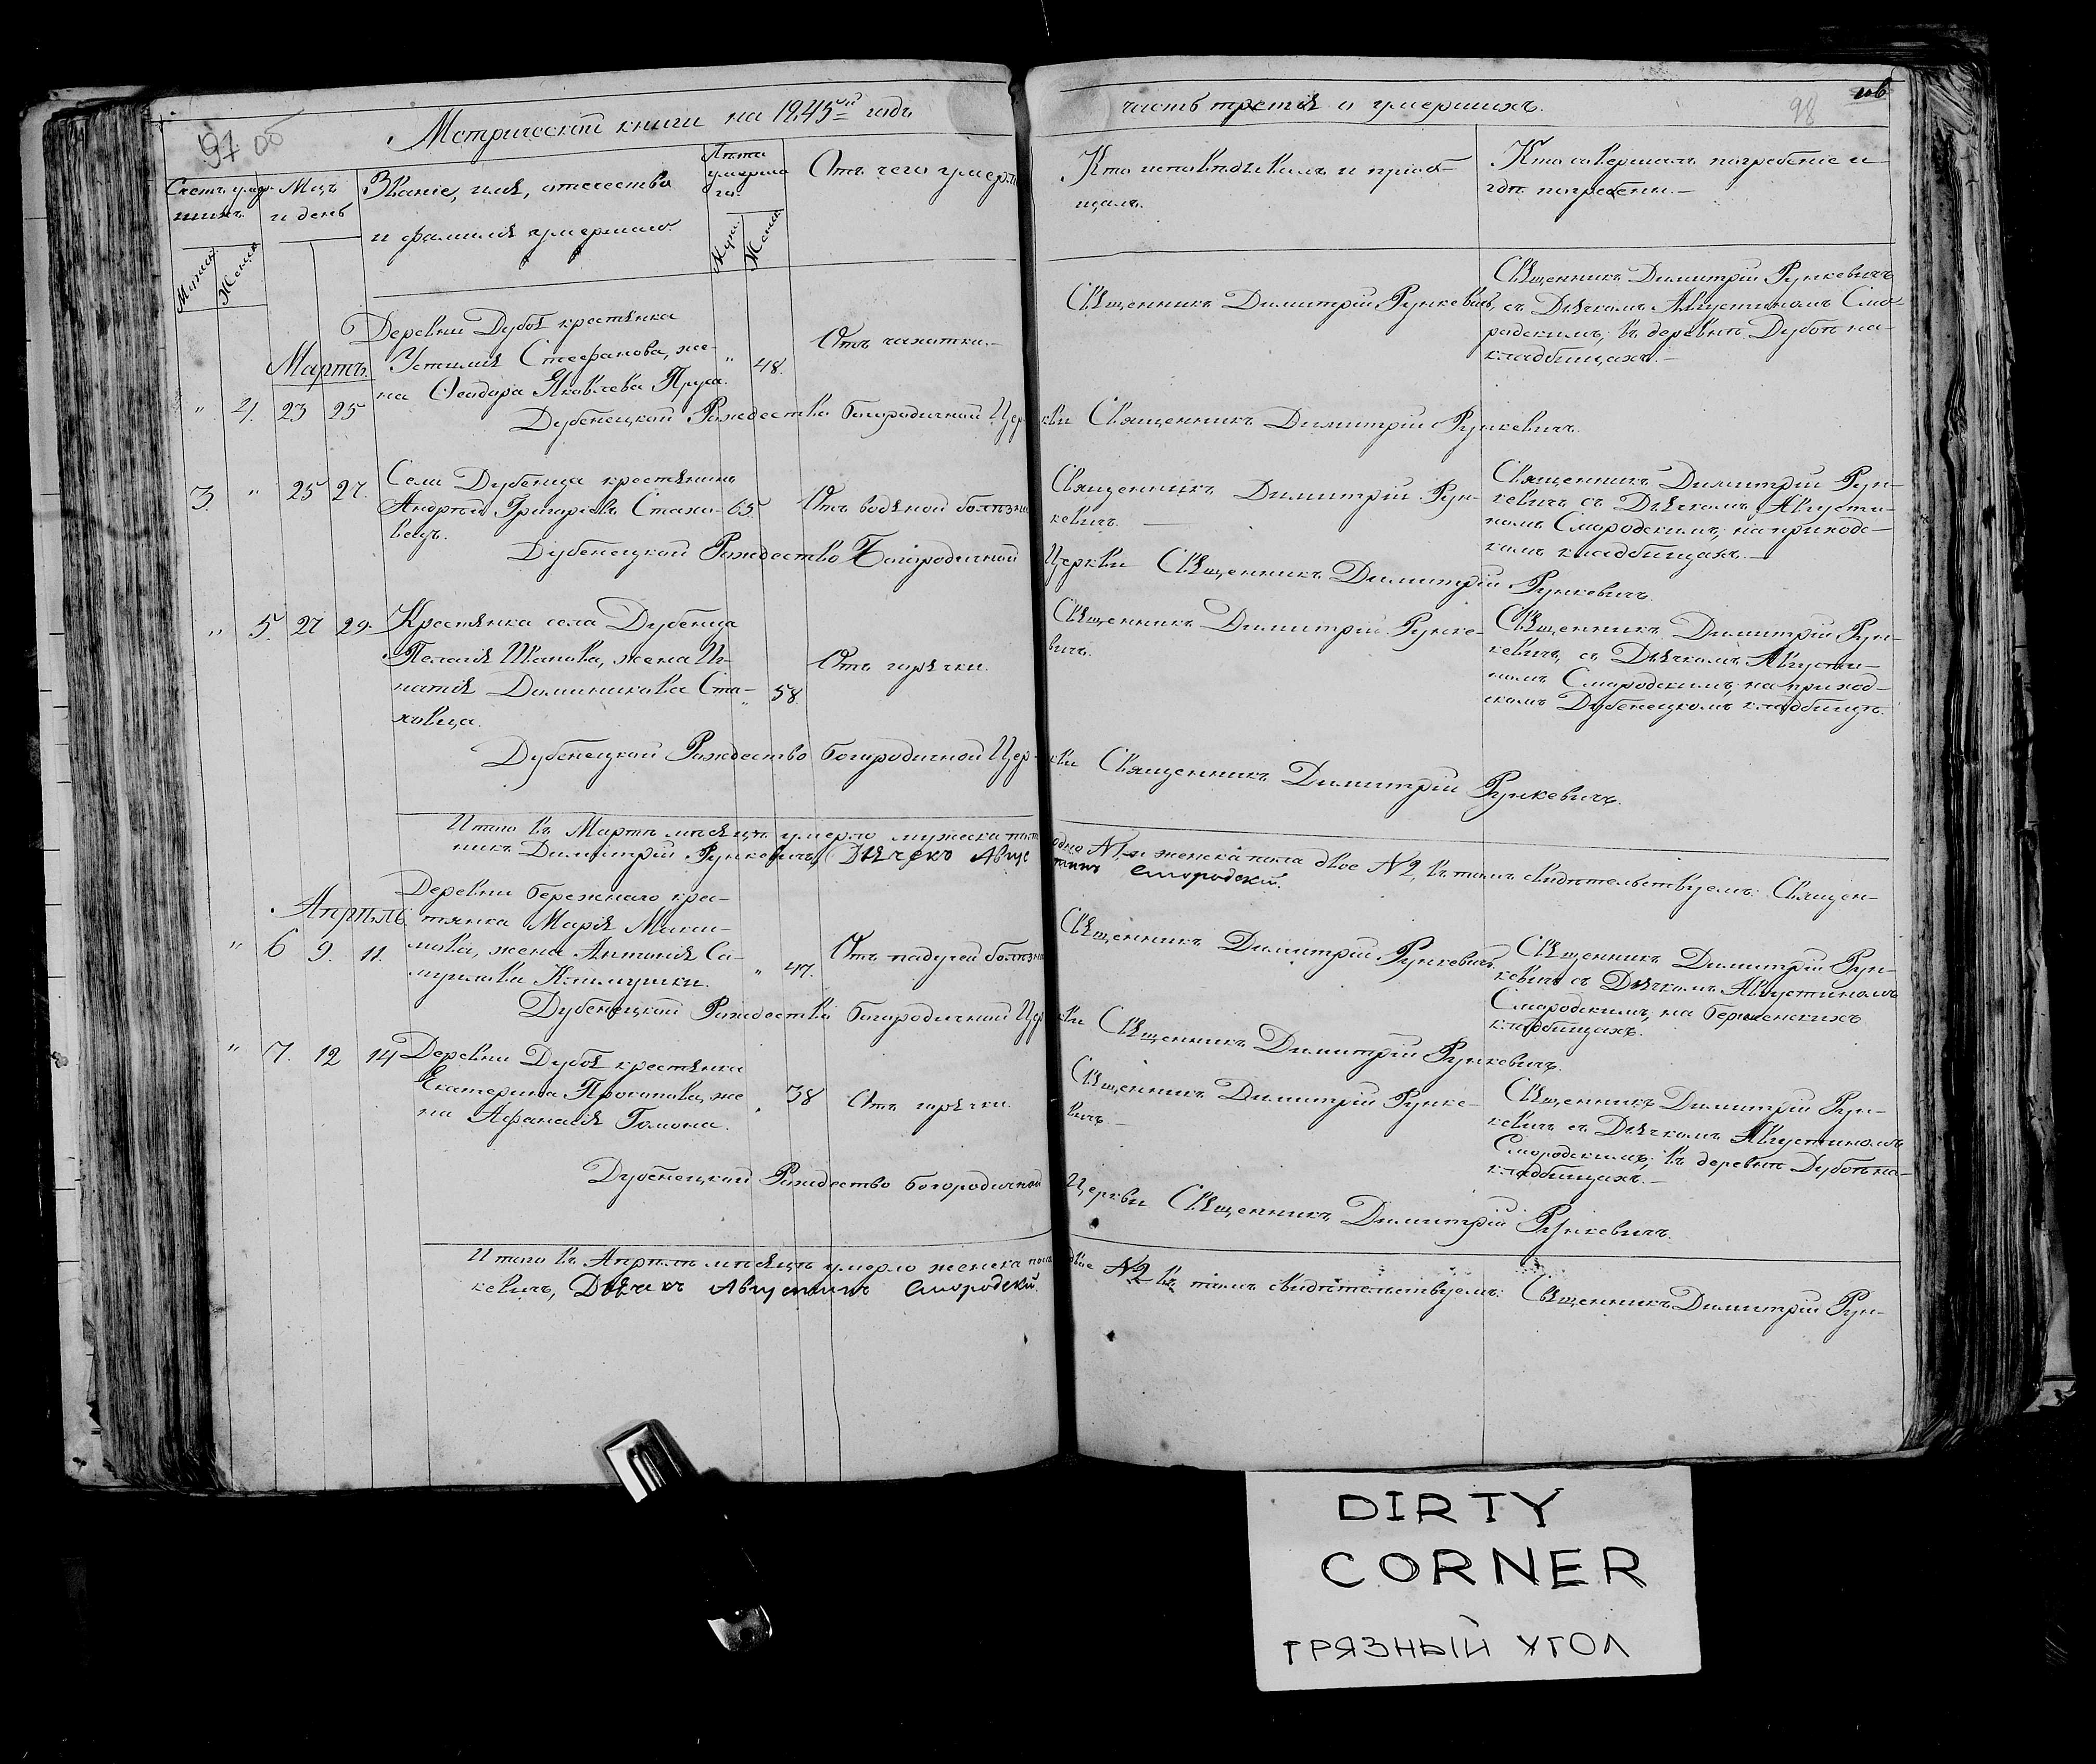 97 об
Метрической книги на 1845ый годъ
часть третія о умершихъ.
98
Счетъ умер-
шихъ
Мцъ
и день
Званіе, имя, отечество
и фамилія умершаго
Лѣта
умерша
го.
Отъ чего умеръ
Кто исповѣдывалъ и пріоб-
щалъ.
Кто совершалъ погребеніе и
гдѣ погребены.—
Мужеск.
Женск.
Муж.
Женск.
Мартъ.
" 4. 23 25
Деревни Дубоя крестьянка
Устинія Стефанова, же-
на Ѳеодора Яковлева
" 48.
Отъ чахотки.—
Священникъ Димитрій Рункевичъ,
Священникъ Димитрій Рункевичъ
съ Дьячкомъ Августиномъ Смо-
родскимъ, въ деревнѣ Дубоѣ на
кладбищахъ.—
Дубенецкой Рождество Богородичной Церкви Священникъ Димитрій Рункевичъ.
3. " 25 27.
Села Дубенца крестьянинъ
Андрей Григорьевъ Стахо-
вецъ.
65.
Отъ водяной болѣзни
Священникъ Димитрій Рун-
кевичъ.—
Священникъ Димитрій Рун-
кевичъ съ Дьячкомъ Августи-
номъ Смородскимъ, на приходс-
комъ кладбищахъ.—
Дубенецкой Рождество Богородичной Церкви Священникъ Димитрій Рункевичъ.
" 5. 27 29.
Крестьянка села Дубенца
Пелагія Иванова, жена Иг-
натія Доминикова Ста-
ховца.
" 58.
Отъ горячки.
Священникъ Димитрій Рунке-
вичъ.
Священникъ Димитрій Рун-
кевичъ, съ Дьячкомъ Августи-
номъ Смородскимъ, на приход-
скомъ Дубенецкомъ кладбищѣ.
Дубенецкой Рождество Богородичной Церкви Священникъ Димитрій Рункевичъ.
Итого въ Мартѣ мѣсяцѣ умерло мужеска пола одно №1, и женска пола двое №2, въ томъ свидѣтельствуемъ: Священ-
никъ Димитрій Рункевичъ, Дьячекъ Августинъ Смородскій.
Апрѣль
" 6 9. 11.
Деревни Бережнаго крес-
тянка Марія Макси-
мова, жена Антонія Са-
муилова
" 47.
Отъ падучей болѣзни
Священникъ Димитрій Рункевичъ.
Священникъ Димитрій Рун-
кевичъ съ Дьячкомъ Августиномъ
Смородскимъ, на
кладбищахъ.
Дубенецкой Рождество Богородичной Церкви Священникъ Димитрій Рункевичъ.
" 7. 12 14
Деревни Дубоя крестьянка
Екатерина Прокопова, же
на Афанасія Гомона.
" 38
Отъ горячки.
Священникъ Димитрій Рунке-
вичъ.—
Священникъ Димитрій Рун-
кевичъ съ Дьячкомъ Августиномъ
Смородскимъ, въ деревнѣ Дубоѣ на
кладбищахъ.—
Дубенецкой Рождество Богородичной Церкви Священникъ Димитрій Рункевичъ.
Итого въ Апрѣлѣ мѣсяцѣ умерло женска пола двое №2 въ томъ свидѣтельствуемъ: Священникъ Димитрій Рун-
кевичъ, Дьячекъ Августинъ Смородскій.
DIRTY
CORNER
ГРЯЗНЫЙ УГОЛ